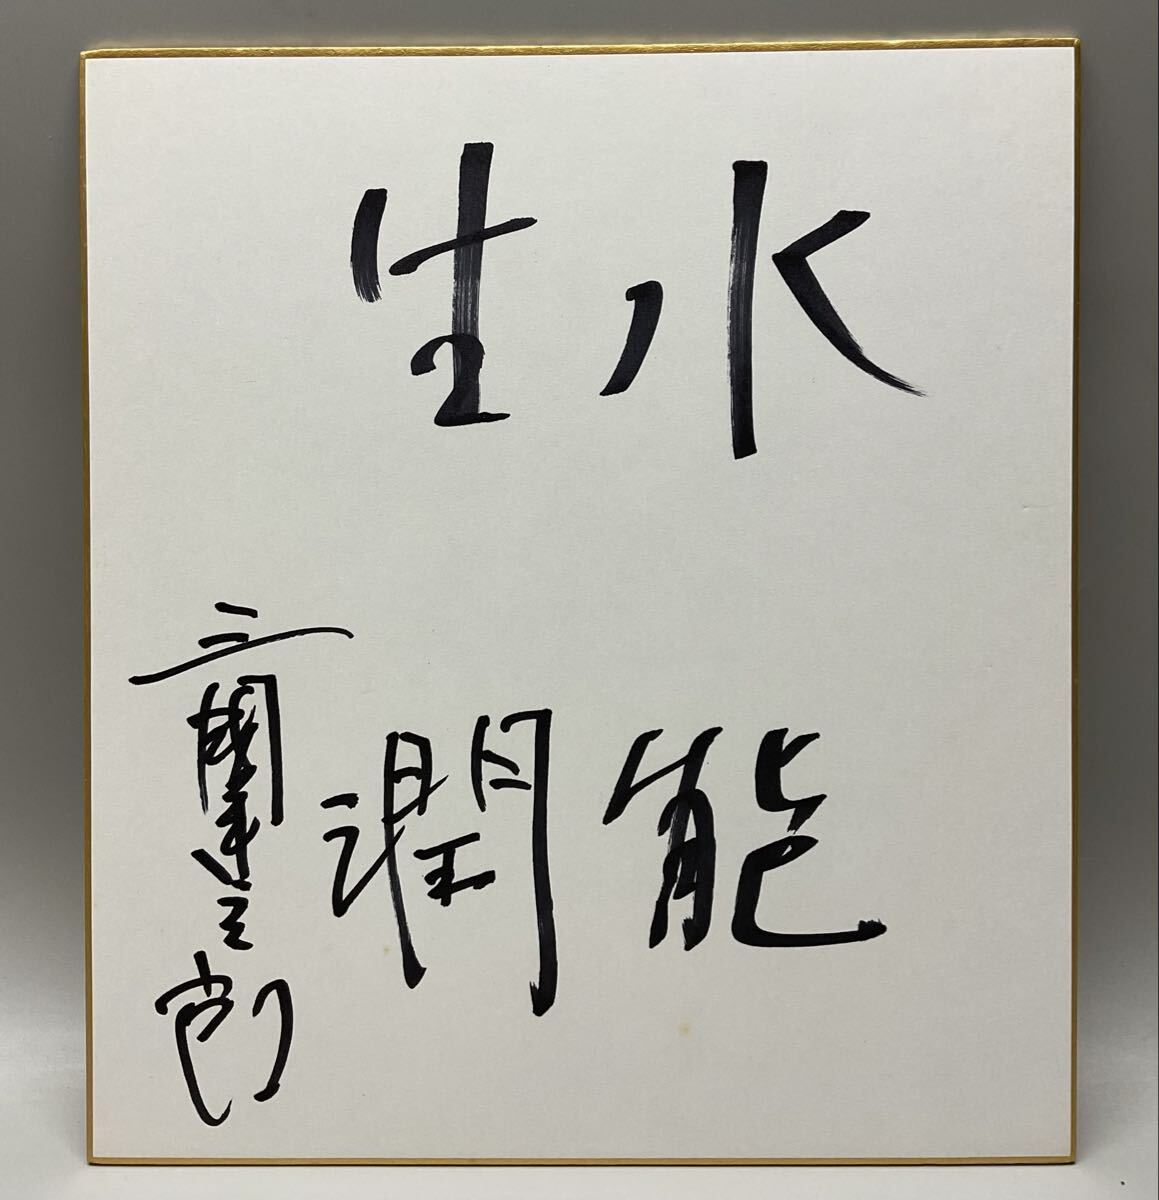 水能
生潤
三國連太郎